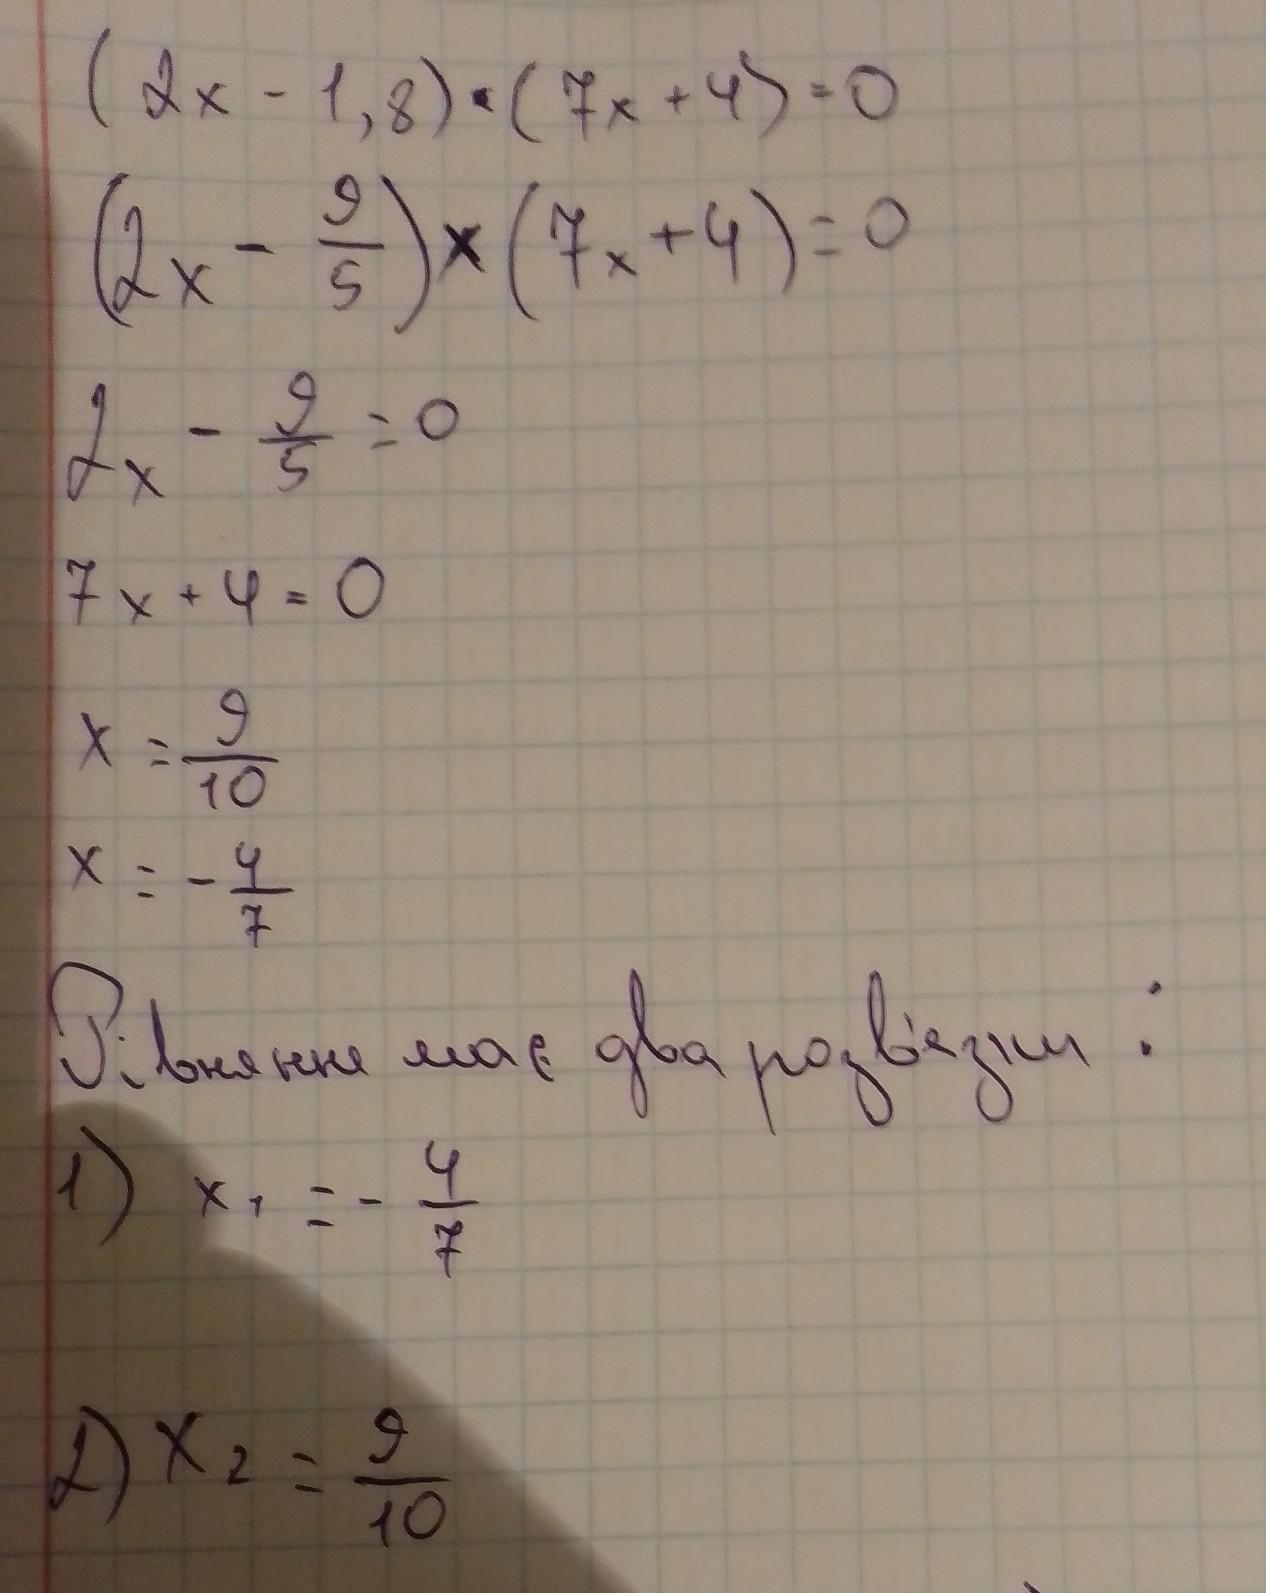 (2x - 1,8) · (7x + 4) = 0
(2x - 9/5) × (7x + 4) = 0
2x - 9/5 = 0
7x + 4 = 0
x = 9/10
x = - 4/7
Рівняння має два розв'язки :
1) x₁ = - 4/7
2) x₂ = 9/10